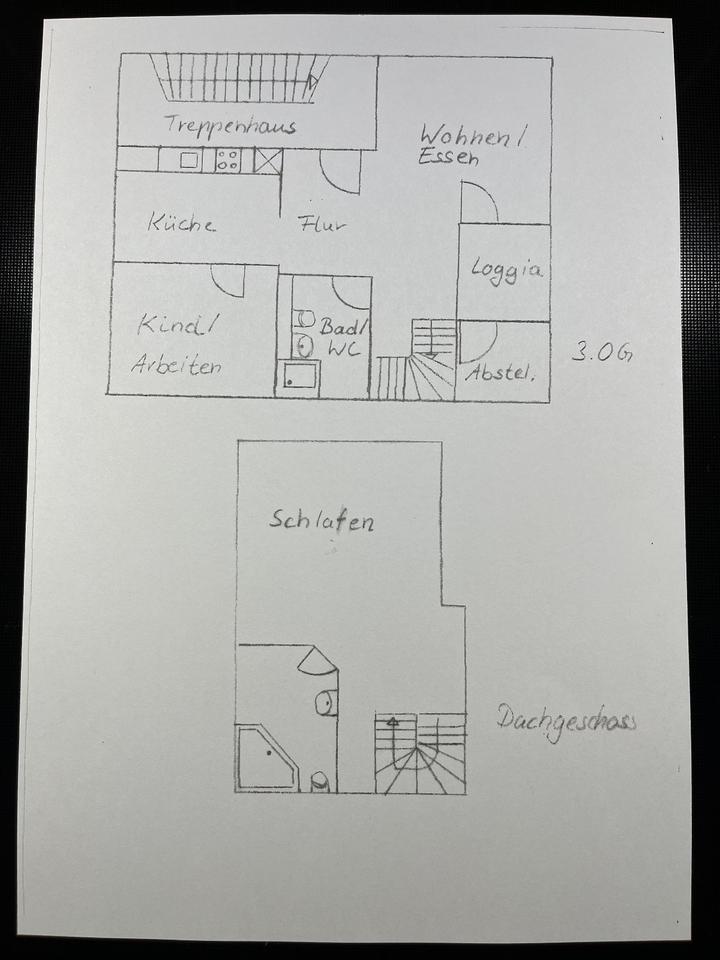 Treppenhaus
Wohnen/
Essen
Küche
Flur
Loggia
Kind/
Arbeiten
Bad/
WC
Abstel.
3.OG
Schlafen
Dachgeschoss